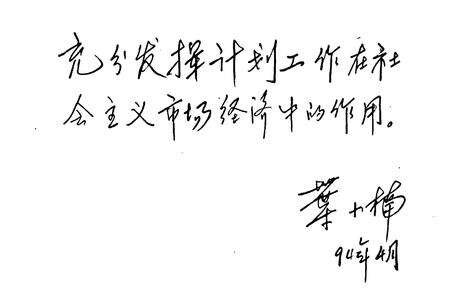 充分发挥计划工作在社
会主义市场经济中的作用。
葉小楠
94年4月